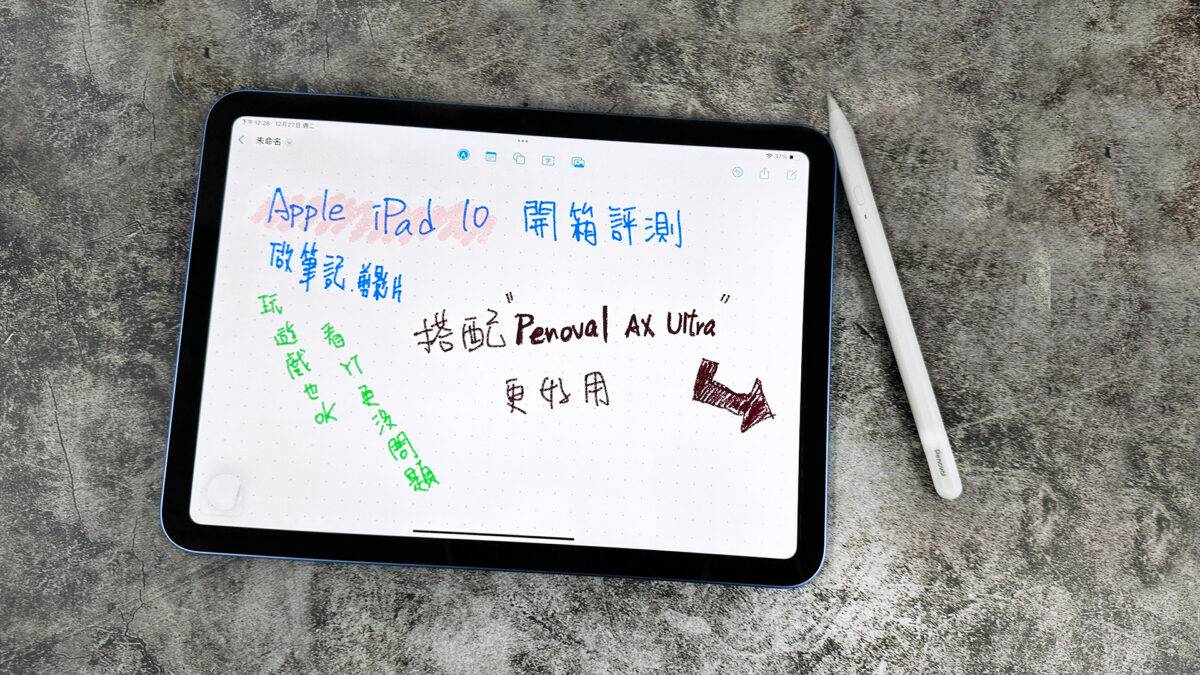 下午12:28 12月27日 週二
37%
未命名
Apple iPad 10 開箱評測
做筆記.剪影片
玩遊戲也OK
看YT更沒問題
搭配"Penoval AX Ultra"
更好用
Penoval